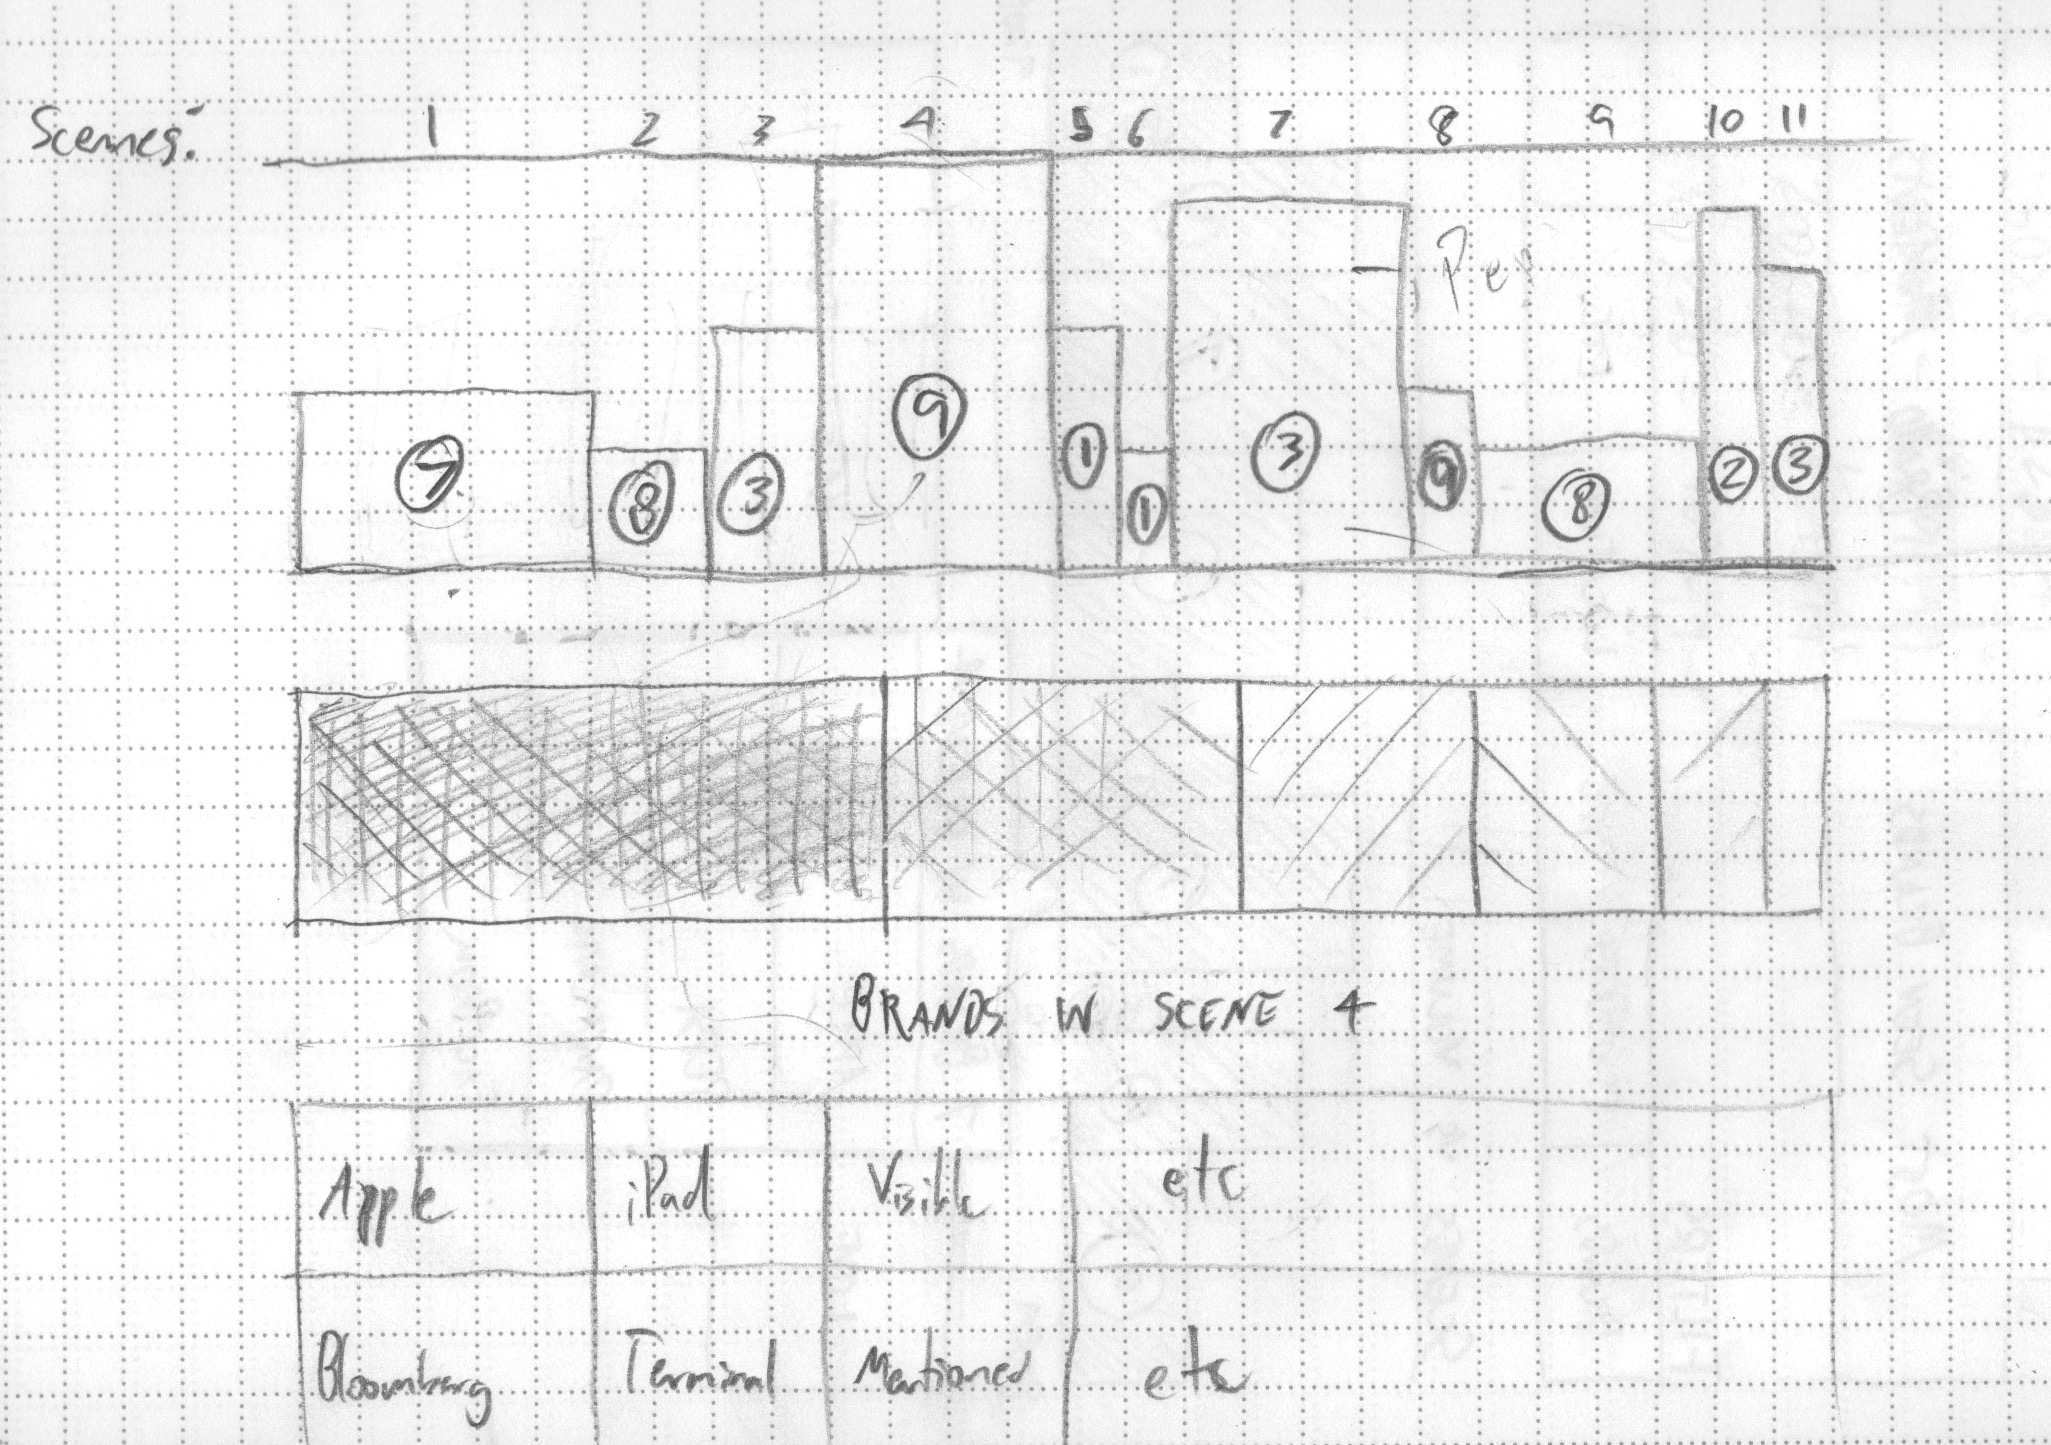 Scenes: 1 2 3 4 5 6 7 8 9 10 11
Per
7 8 3 9 1 1 3 9 8 2 3
BRANDS IN SCENE 4
Apple iPad Visible etc
Bloomberg Terminal Mentioned etc